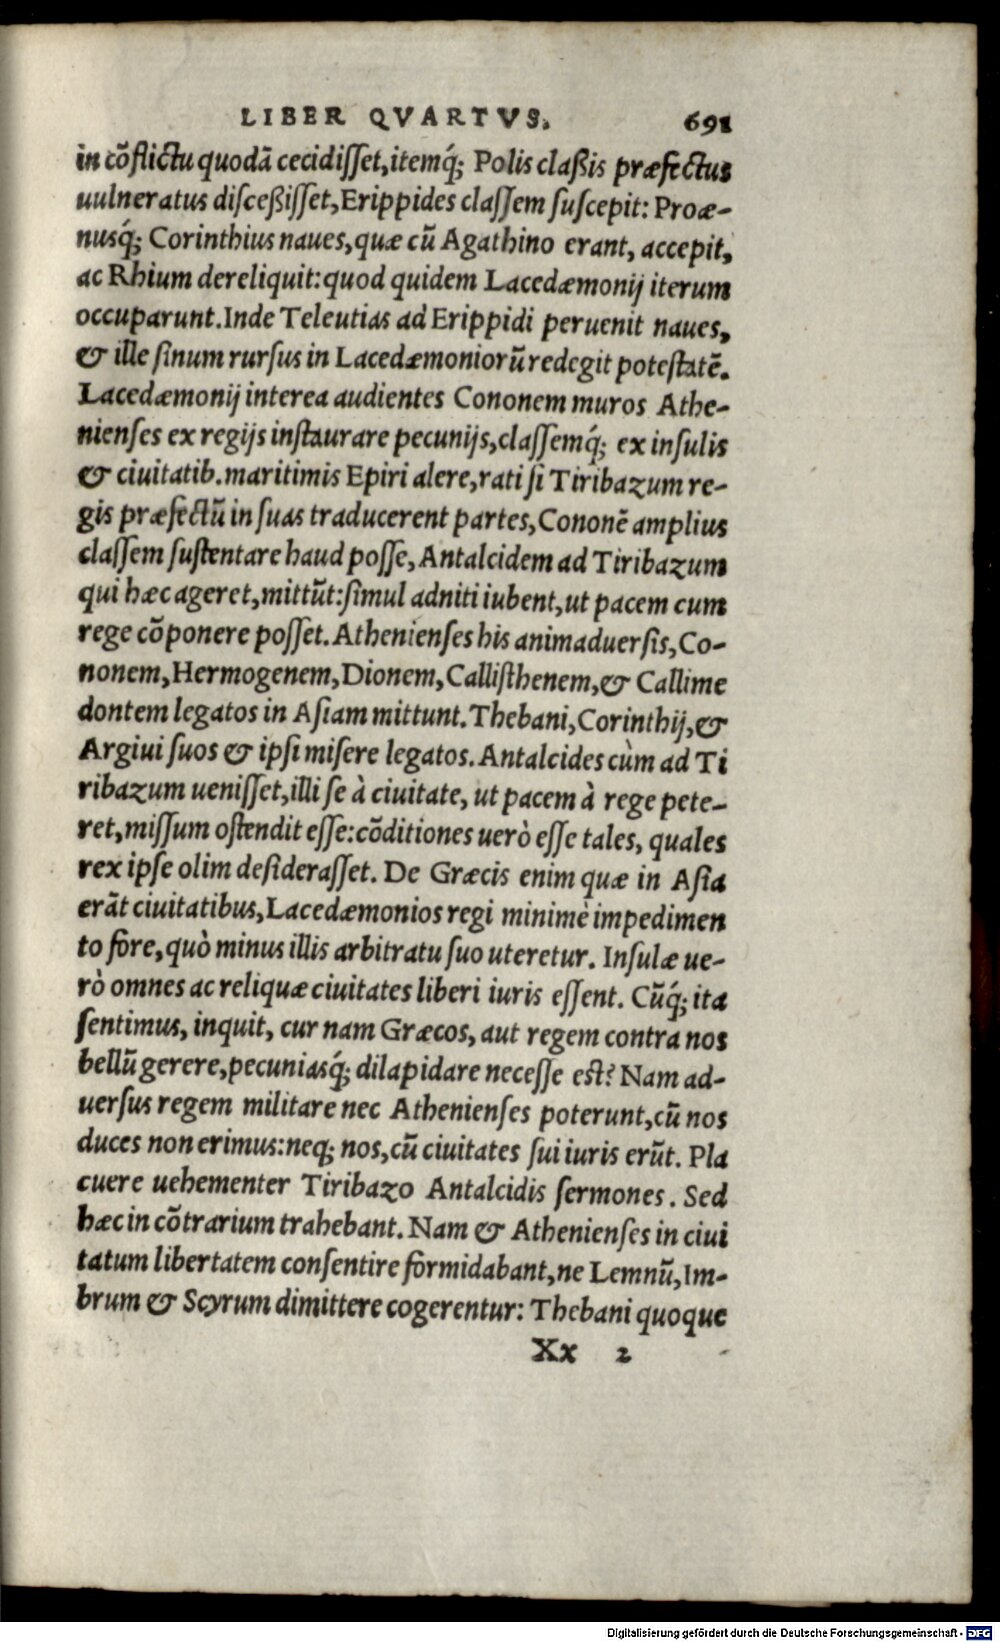 LIBER QVARTVS. 691
in cõflictu quodã cecidiſſet, itemq́; Polis claßis præfectus
uulneratus diſceßiſſet, Erippides claſſem ſuſcepit: Proæ-
nusq́; Corinthius naues, quæ cũ Agathino erant, accepit,
ac Rhium dereliquit: quod quidem Lacedæmonij iterum
occuparunt. Inde Teleutias ad Erippidi peruenit naues,
& ille ſinum rurſus in Lacedæmoniorũ redegit poteſtatẽ.
Lacedæmonij interea audientes Cononem muros Athe-
nienſes ex regijs inſtaurare pecunijs, claſſemq́; ex inſulis
& ciuitatib. maritimis Epiri alere, rati ſi Tiribazum re-
gis præfectũ in ſuas traducerent partes, Cononẽ amplius
claſſem ſuſtentare haud poſſe, Antalcidem ad Tiribazum
qui hæc ageret, mittũt: ſimul adniti iubent, ut pacem cum
rege cõponere poſſet. Athenienſes his animaduerſis, Co-
nonem, Hermogenem, Dionem, Calliſthenem, & Callime
dontem legatos in Aſiam mittunt. Thebani, Corinthij, &
Argiui ſuos & ipſi miſere legatos. Antalcides cùm ad Ti
ribazum ueniſſet, illi ſe à ciuitate, ut pacem à rege pete-
ret, miſſum oſtendit eſſe: cõditiones uerò eſſe tales, quales
rex ipſe olim deſideraſſet. De Græcis enim quæ in Aſia
erãt ciuitatibus, Lacedæmonios regi minimè impedimen
to fore, quò minus illis arbitratu ſuo uteretur. Inſulæ ue-
rò omnes ac reliquæ ciuitates liberi iuris eſſent. Cũq́; ita
ſentimus, inquit, cur nam Græcos, aut regem contra nos
bellũ gerere, pecuniasq́; dilapidare neceſſe eſt? Nam ad-
uerſus regem militare nec Athenienſes poterunt, cũ nos
duces non erimus: neq; nos, cũ ciuitates ſui iuris erũt. Pla
cuere uehementer Tiribazo Antalcidis ſermones. Sed
hæc in cõtrarium trahebant. Nam & Athenienſes in ciui
tatum libertatem conſentire formidabant, ne Lemnũ, Im-
brum & Scyrum dimittere cogerentur: Thebani quoque
Xx 2
Digitalisierung gefördert durch die Deutsche Forschungsgemeinschaft - DFG